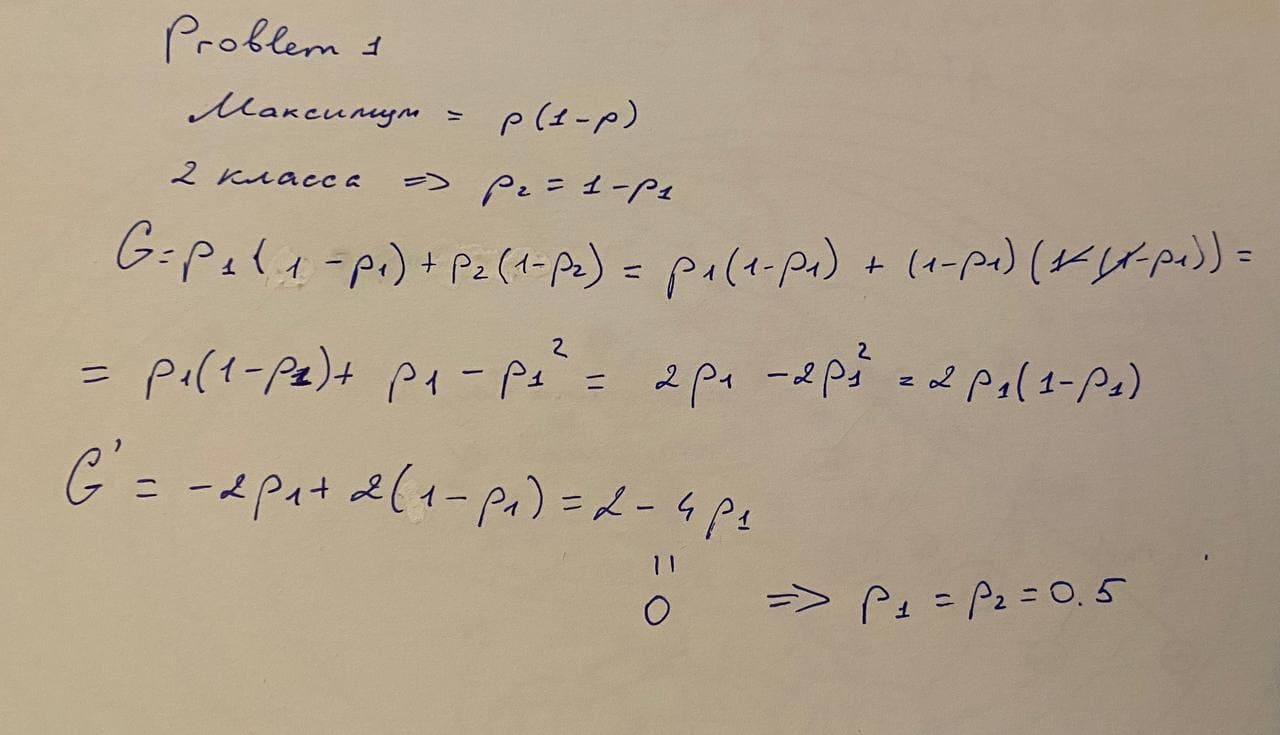 Problem 1
Максимум = p(1-p)
2 класса => p₂ = 1-p₁
G = p₁(1-p₁) + p₂(1-p₂) = p₁(1-p₁) + (1-p₁)(1-(1-p₁)) =
= p₁(1-p₁) + p₁ - p₁² = 2p₁ - 2p₁² = 2p₁(1-p₁)
G' = -2p₁ + 2(1-p₁) = 2 - 4p₁
||
0 => p₁ = p₂ = 0.5